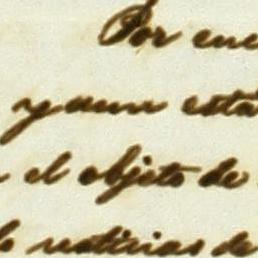 Por enc
y aun esta
el objeto de
noticias de